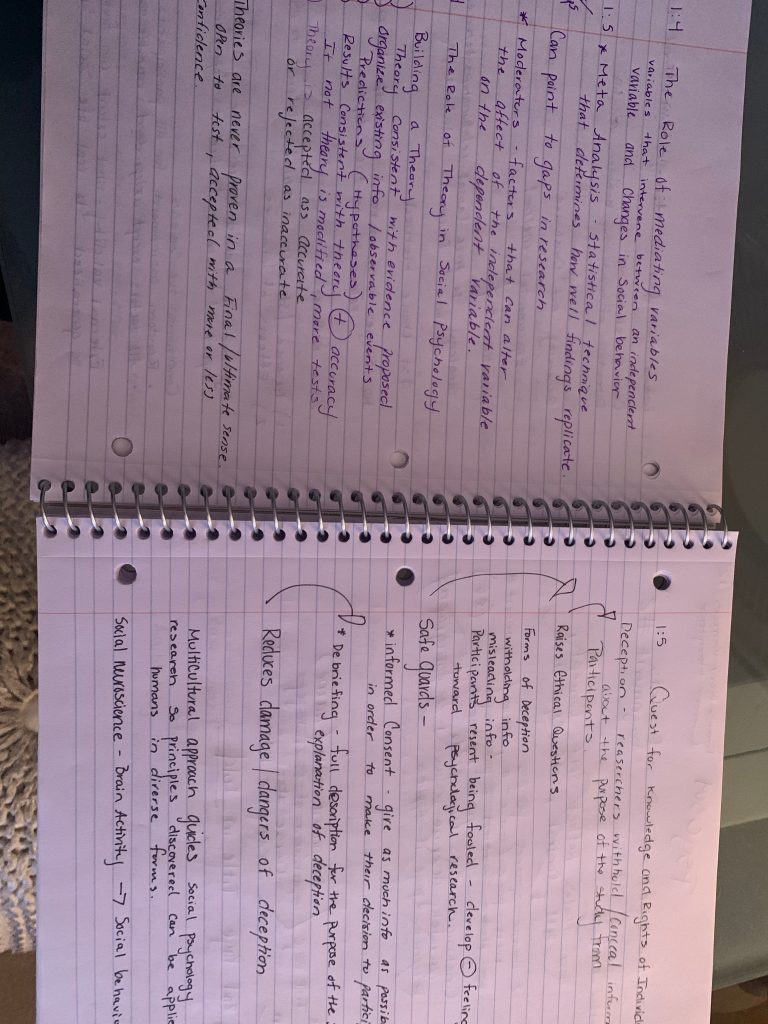 1:4 The Role of mediating variables
variables that intervene between an independent
variable and changes in Social behavior
1:5 * Meta Analysis - statistical technique
that determines how well findings replicate.
Can point to gaps in research
* Moderators - factors that can alter
the affect of the independent variable
on the dependent variable.
The Role of Theory in Social Psychology
Building a Theory
Theory Consistent with evidence proposed
organize existing info / observable events
Predictions (Hypotheses)
Results Consistent with theory (+) accuracy
If not theory is modified, more tests
Theory is accepted ass accurate
or rejected as inaccurate
Theories are never proven in a Final / ultimate sense.
open to test, accepted with more or less
Confidence.
1:5 Quest for Knowledge and Rights of Individ
Deception - reaserchers withhold / Conceal inform
about the purpose of the study from
Participants
Raises Ethical Questions
Forms of Deception
witholding info
misleading info -
Participants resent being fooled - develop (-) feeling
toward psychological research.
Safe guards -
* informed Consent - give as much info as possib
in order to make their decision to partici
* Debriefing - full description for the purpose of the
explanation of deception
Reduces damage / dangers of deception
Multicultural approach guides social psychology
research so principles discovered can be applie
humans in diverse forms.
Social neuroscience - Brain Activity → Social behavio